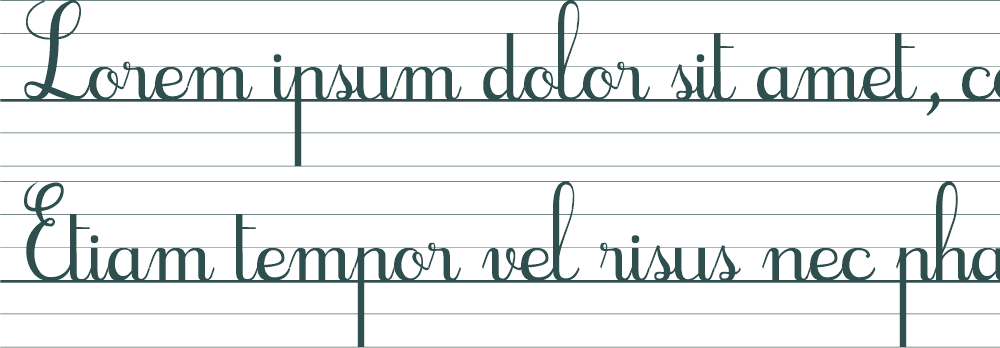 Lorem ipsum dolor sit amet, co
Etiam tempor vel risus nec pha